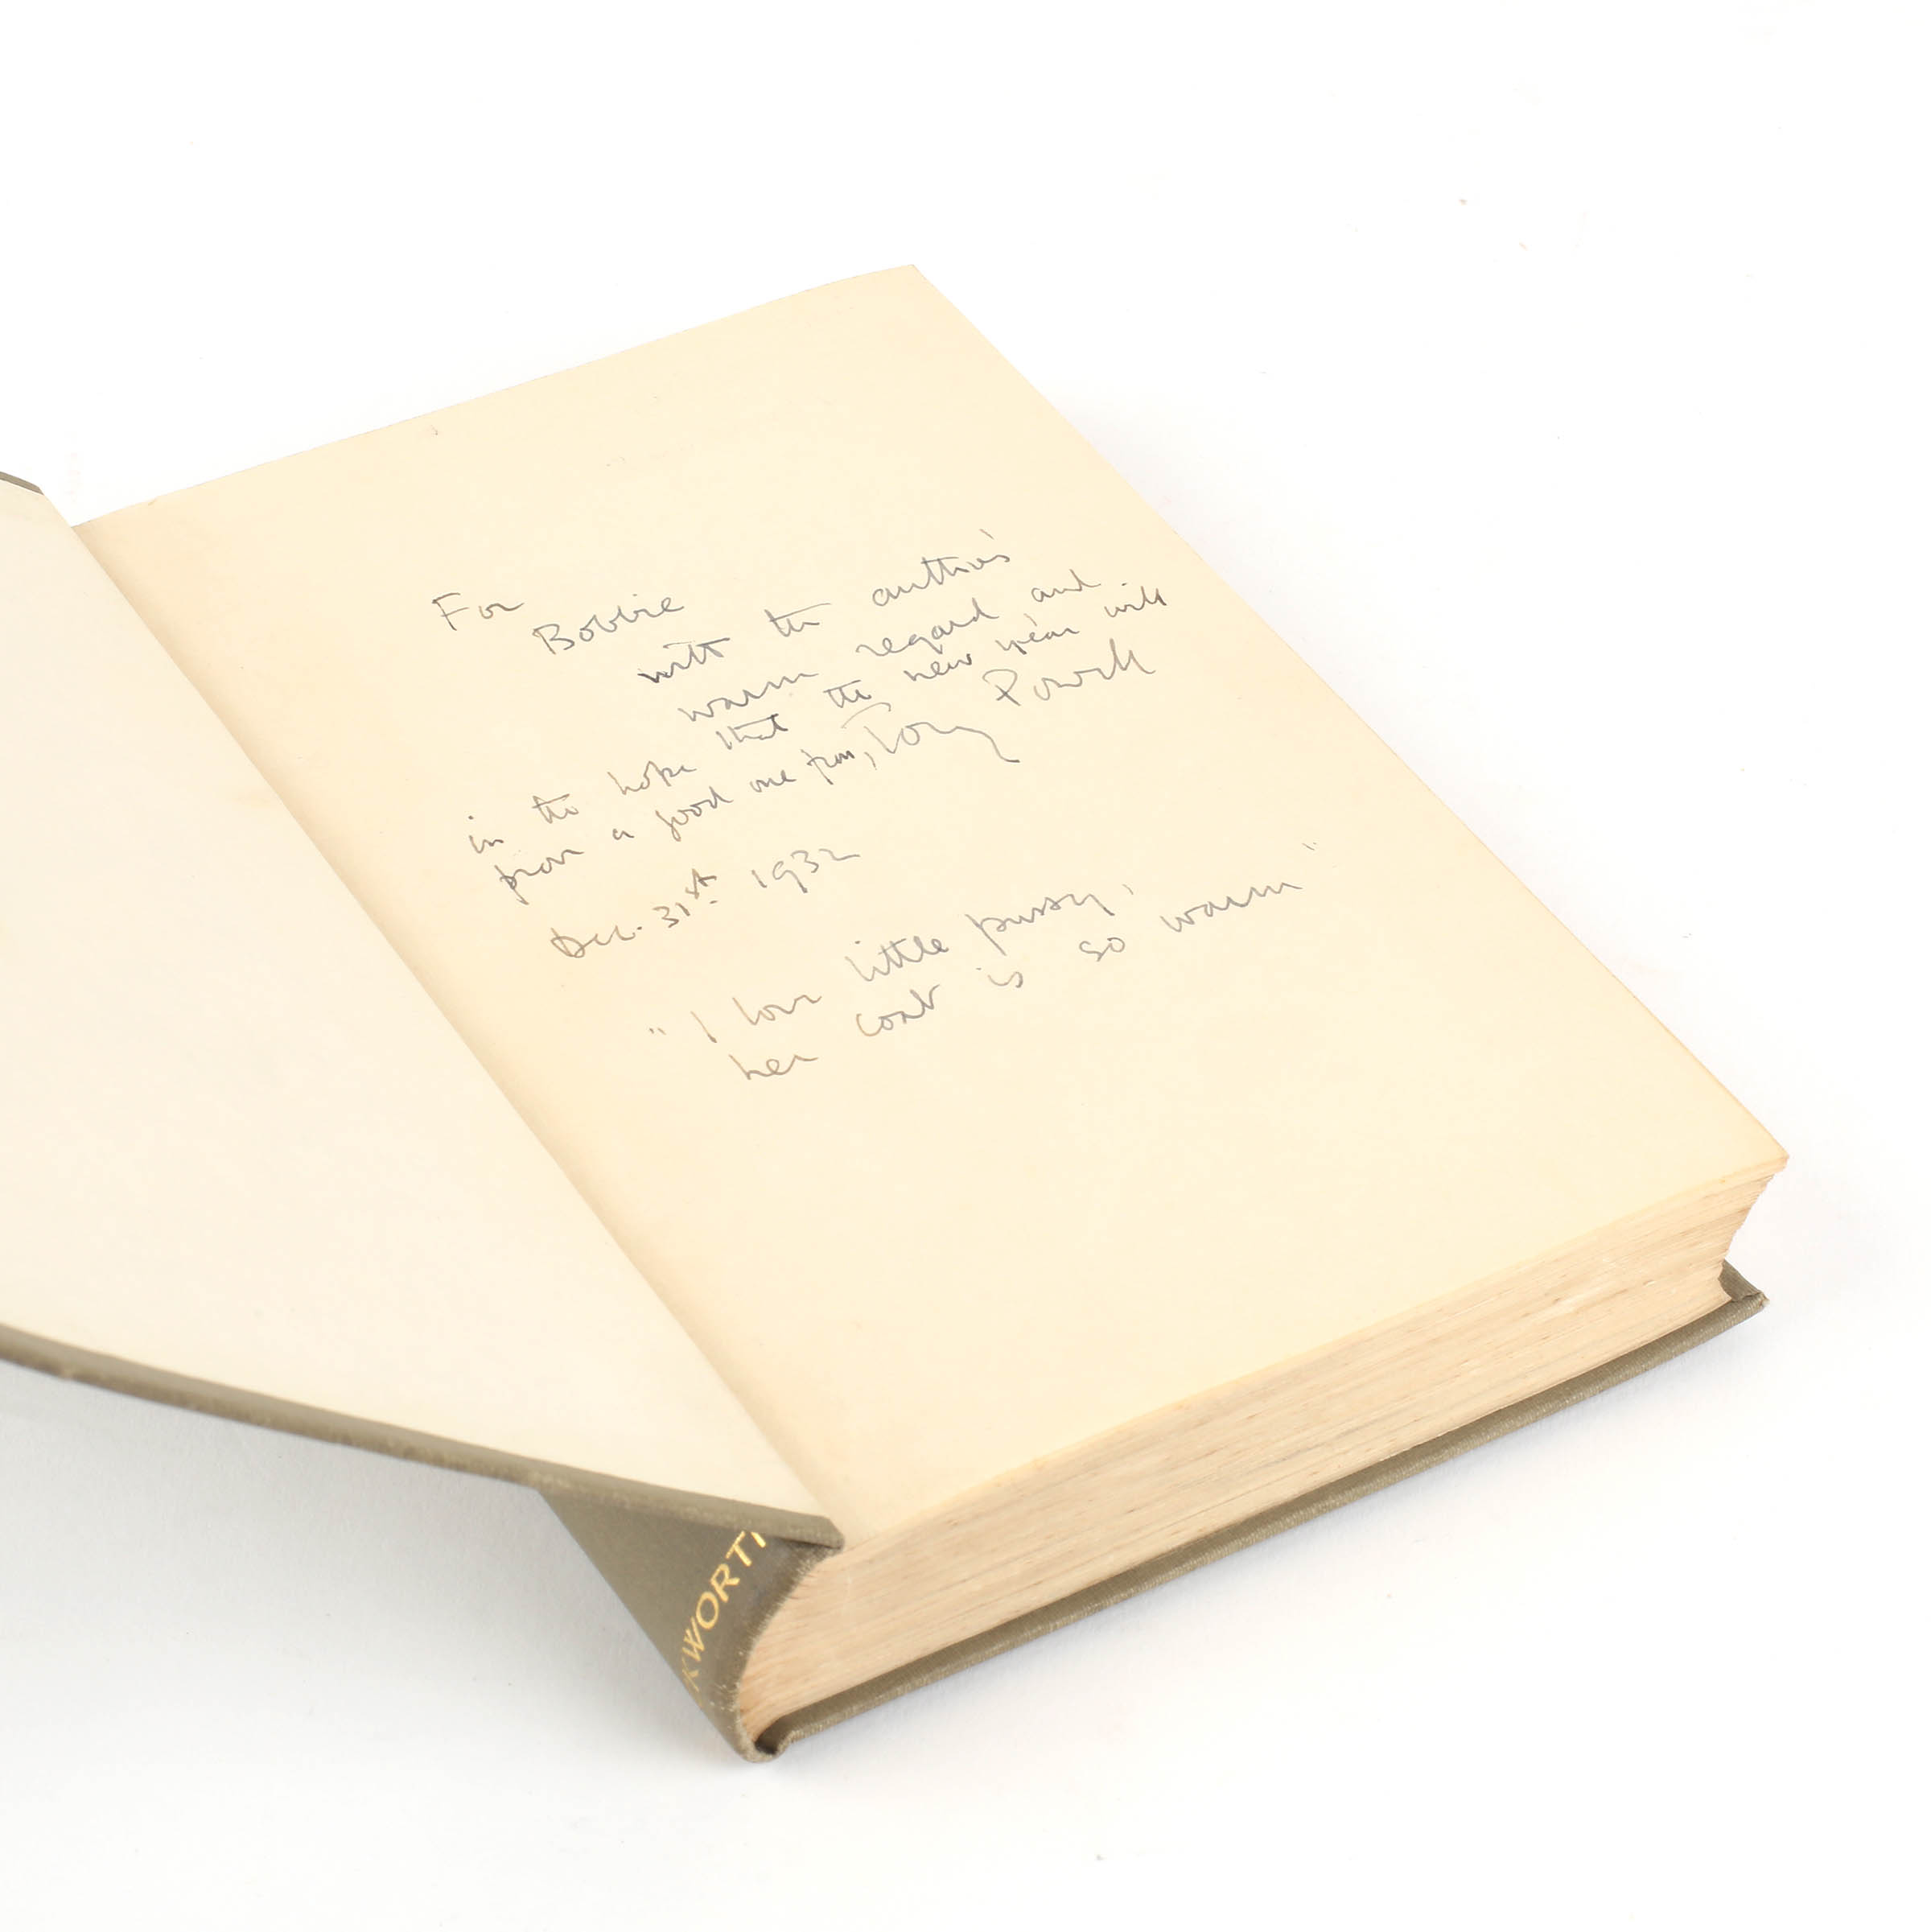 For
Bobbie
with the author's
warm regard and
in the hope that the new year will
prove a good one from, Tony Powell
Dec. 31st 1932
"I love little pussy,
her coat is so warm"
KWORTH